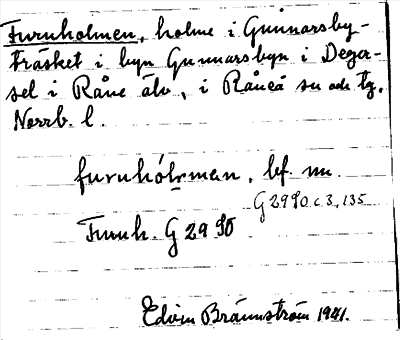 Furuholmen, holme i Gunnarsby-
träsket i byn Gunnarsbyn i Degersel
i Råne älv, i Råneå sn och tg,
Norrb. l.
furuhólmen, bf. nu.
G 2990 c 3, 135
Furuh. G 29 90
Edvin Brännström 1941.